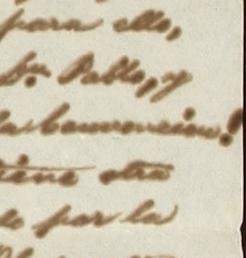 para ello,
Dn. Pablo, y
la convencion.
tiene otra
de por la